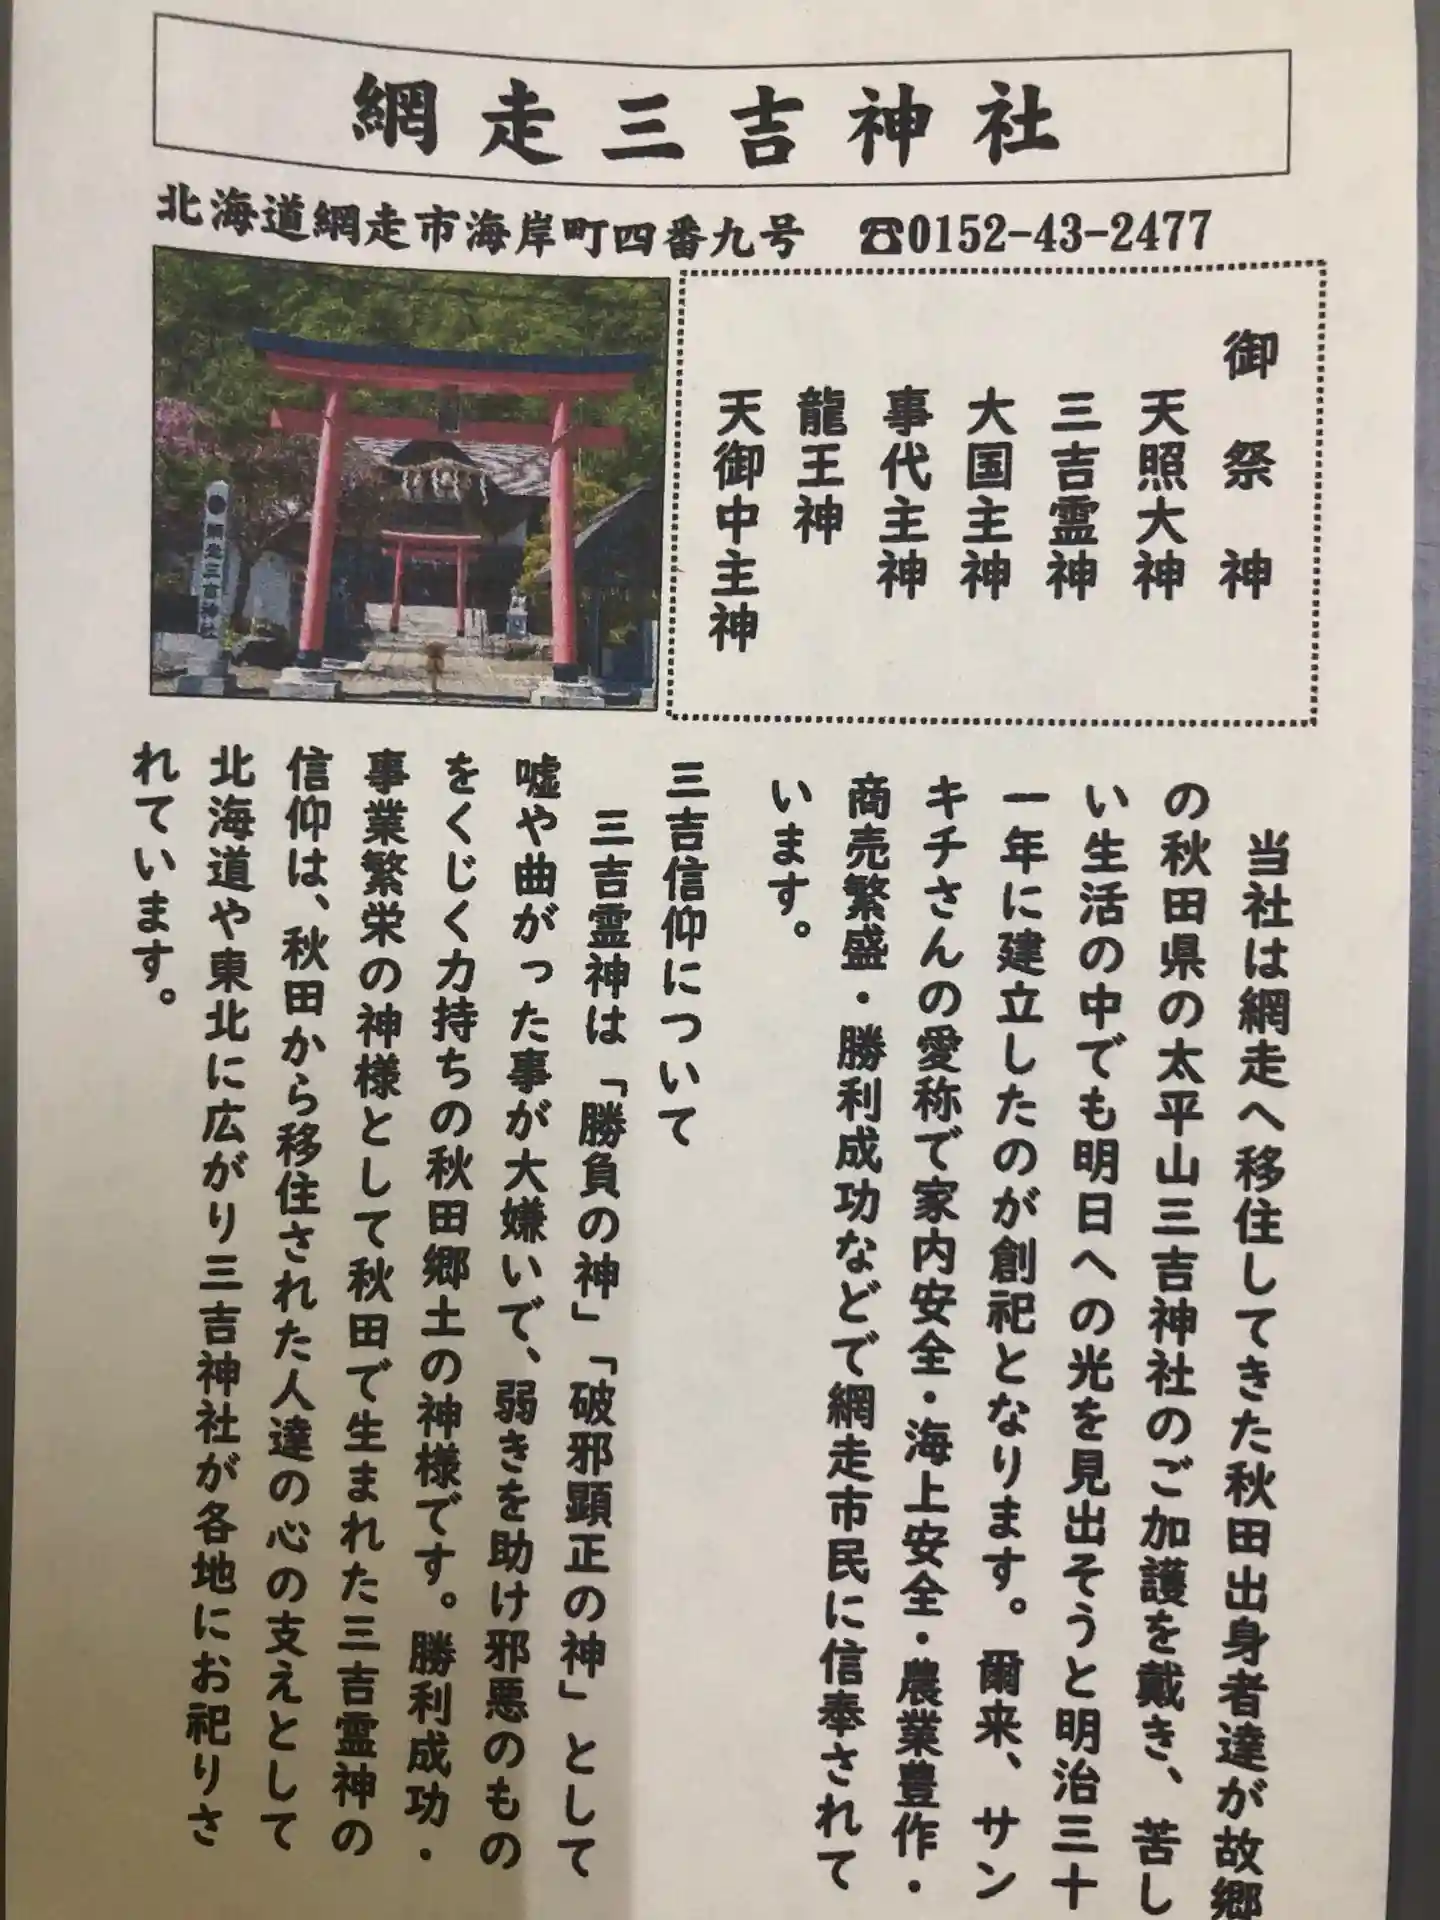 網走三吉神社
北海道網走市海岸町四番九号 ☎0152-43-2477
御祭神
天照大神
三吉霊神
大国主神
事代主神
龍王神
天御中主神
網走三吉神社
当社は網走へ移住してきた秋田出身者達が故郷
の秋田県の太平山三吉神社のご加護を戴き、苦し
い生活の中でも明日への光を見出そうと明治三十
一年に建立したのが創祀となります。爾来、サン
キチさんの愛称で家内安全・海上安全・農業豊作・
商売繁盛・勝利成功などで網走市民に信奉されて
います。
三吉信仰について
三吉霊神は「勝負の神」「破邪顕正の神」として
嘘や曲がった事が大嫌いで、弱きを助け邪悪のもの
をくじく力持ちの秋田郷土の神様です。勝利成功・
事業繁栄の神様として秋田で生まれた三吉霊神の
信仰は、秋田から移住された人達の心の支えとして
北海道や東北に広がり三吉神社が各地にお祀りさ
れています。